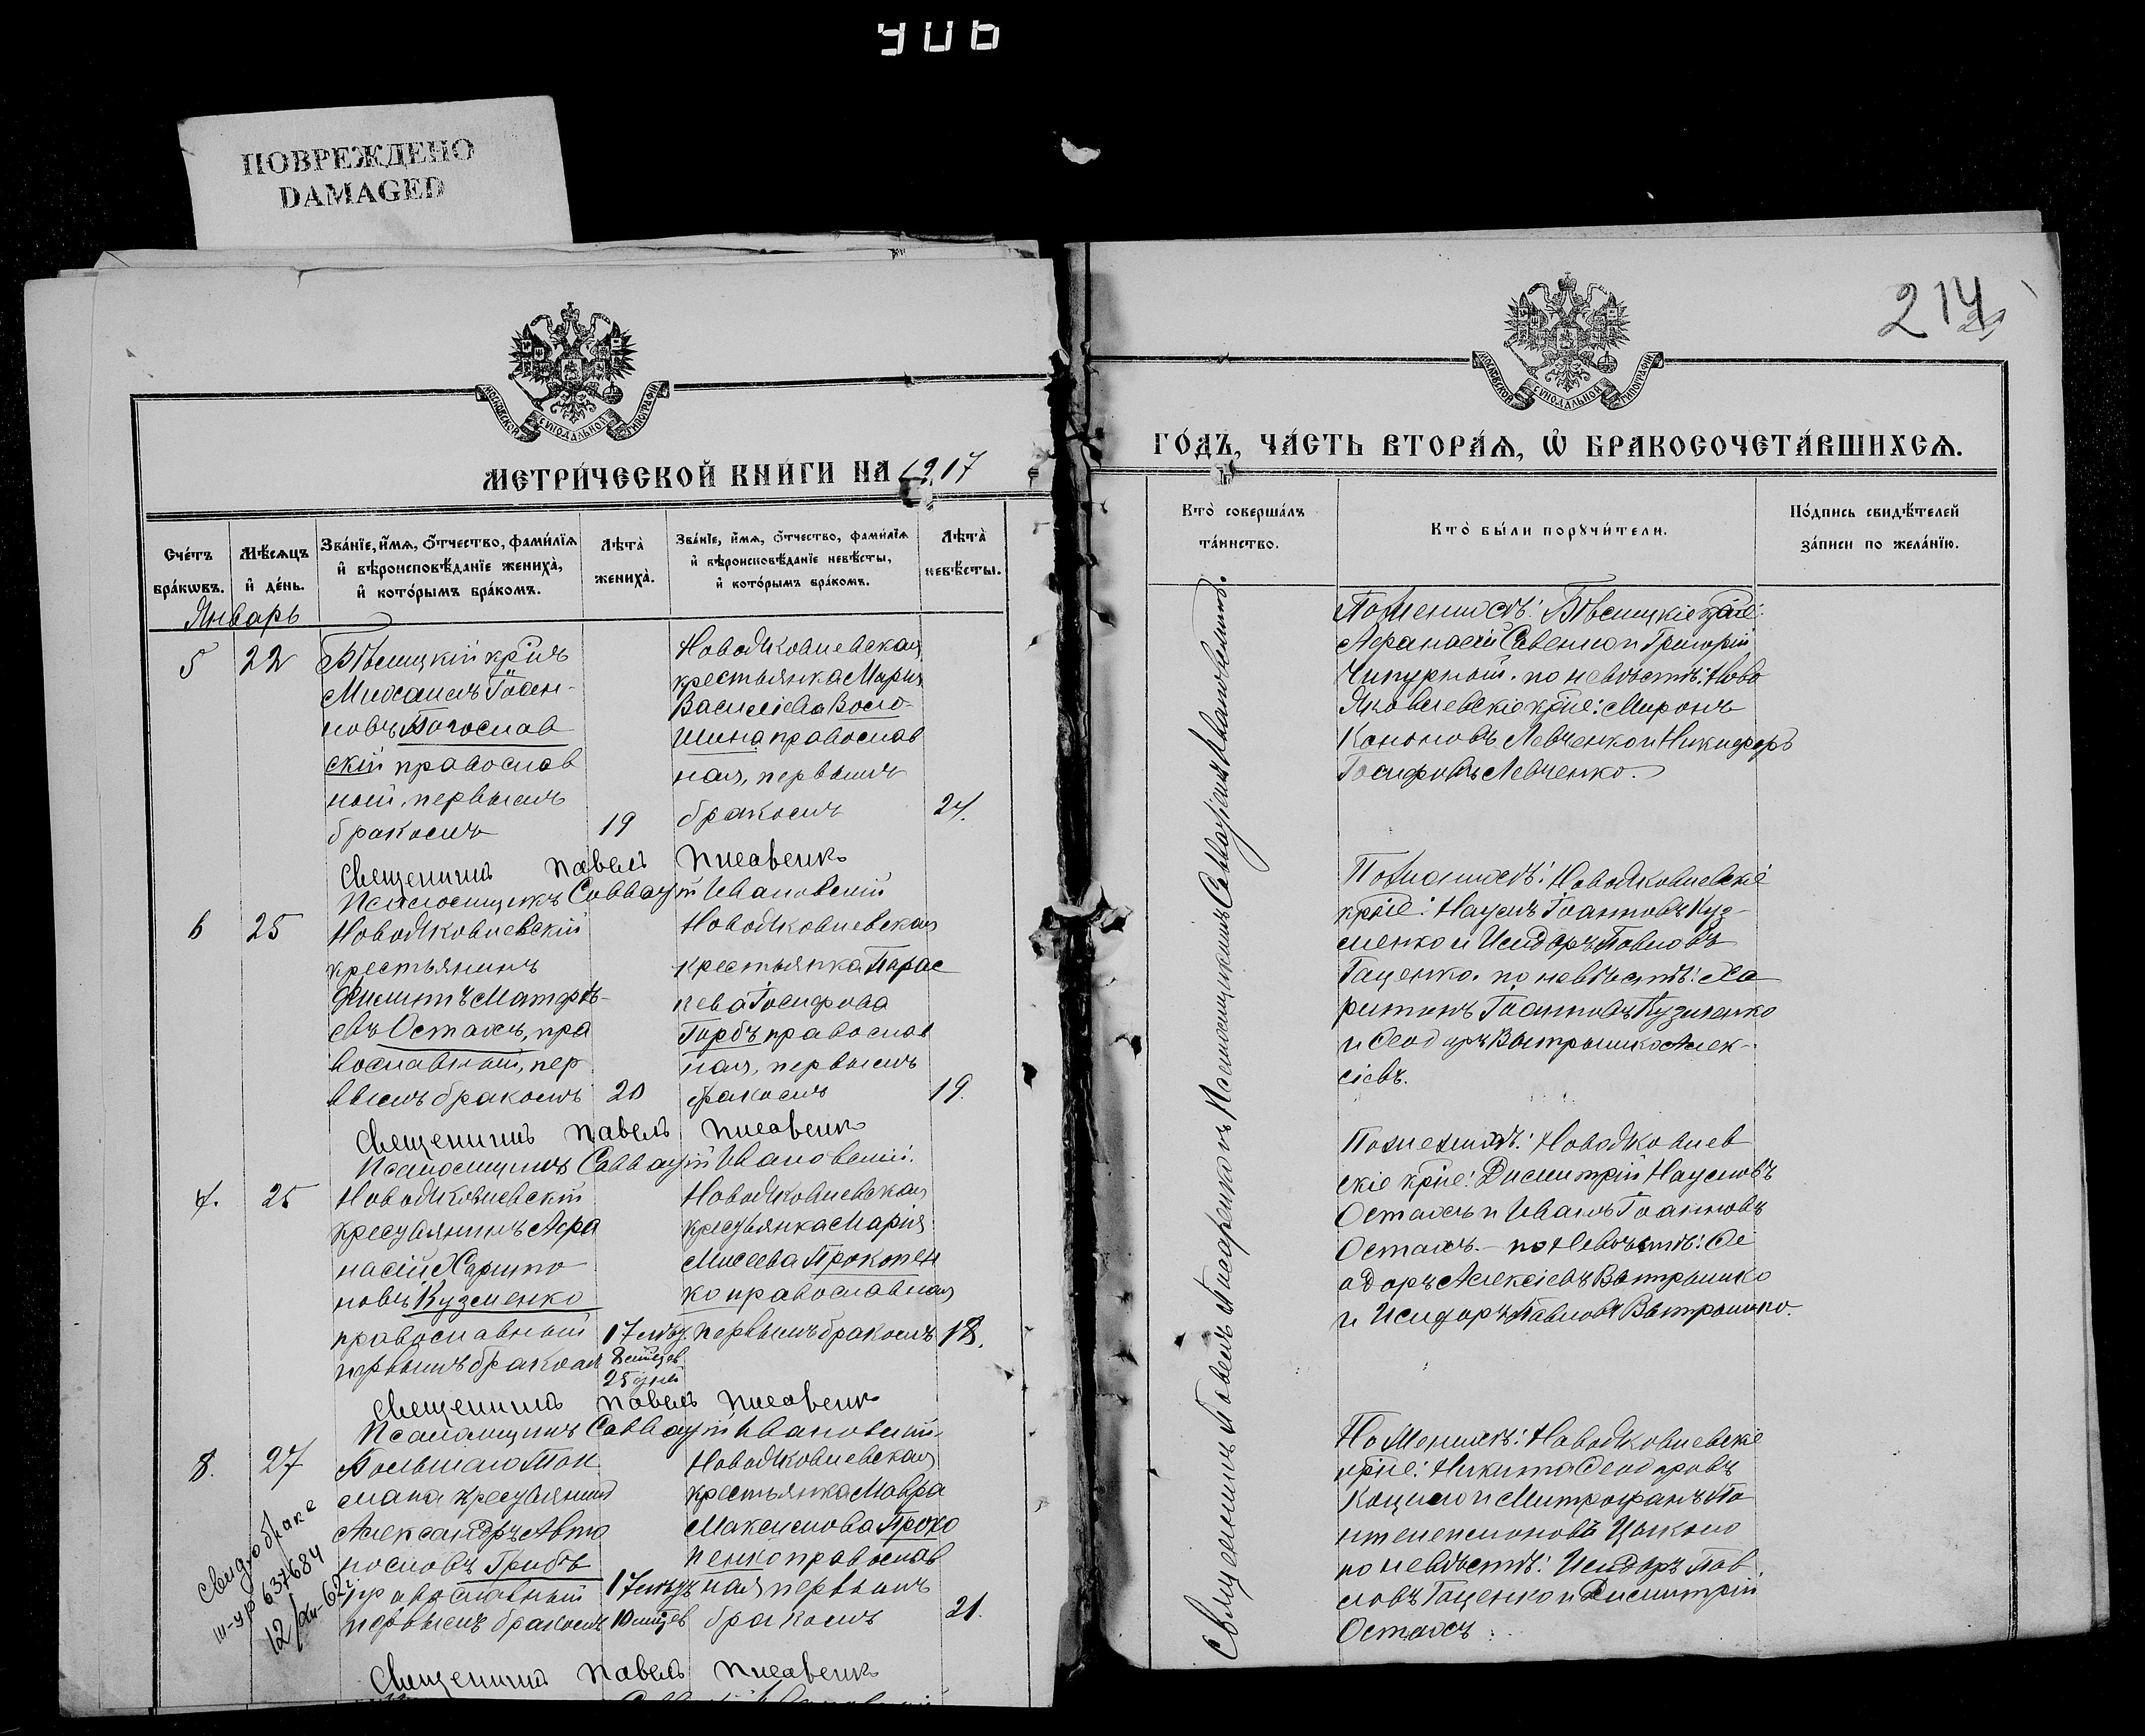 906
ПОВРЕЖДЕНО
DAMAGED
214
МОСКОВСКОЙ СѴНОДАЛЬНОЙ ТИПОГРАФІИ
МЕТРИ́ЧЕСКОЙ КНИ́ГИ НА 1917
Сче́тъ бра́кѡвъ.
Мѣ́сяцъ и҆ де́нь.
Зва́нїе, и҆́мѧ, ѻ҆́тчество, фами́лїѧ
и҆ вѣроисповѣ́данїе жениха̀,
и҆ кото́рымъ бра́комъ.
Лѣта̀ жениха̀.
Зва́нїе, и҆́мѧ, ѻ҆́тчество, фами́лїѧ
и҆ вѣроисповѣ́данїе невѣ́сты,
и҆ кото́рымъ бра́комъ.
Лѣта̀ невѣ́сты.
Январь
5
22
Бѣлицкій кр̃нъ
Михаилъ Іоан-
новъ Богослав
скій православ
ный, первымъ
бракомъ
19
НовоЯковлевская
крестьянка Марія
Василіева Воло-
шина православ
ная, первымъ
бракомъ
24.
Священникъ Павелъ Писаренко
Псаломщикъ Савватій Ивановскій
6
25
НовоЯковлевскій
крестьянинъ
Филиппъ Матфѣ-
евъ Остахъ, пра
вославный, пер
вымъ бракомъ
20
НовоЯковлевская
крестьянка Парас
кева Іосифова
Горбъ православ
ная, первымъ
бракомъ
19.
Священникъ Павелъ Писаренко
Псаломщикъ Савватій Ивановскій.
7.
25
НовоЯковлевскій
крестьянинъ Афа
насій Харито
новъ Кузменко
православный
первымъ бракомъ
17 лѣтъ.
8 мѣсяцев
25 дней
НовоЯковлевская
крестьянка Марія
Моисеева Прокопен
ко православная
первымъ бракомъ
18.
Священникъ Павелъ Писаренко
Псаломщикъ Савватій Ивановскій
8.
27
Большаго Ток
мака крестьянинъ
Александръ Авто
номовъ Грибъ
православный
первымъ бракомъ
17 лѣтъ
10 мѣсяцев
НовоЯковлевская
крестьянка Мавра
Максимова Проко
пенко православ
ная первымъ
бракомъ
21.
Свид. о браке
637684
Священникъ Павелъ Писаренко
МОСКОВСКОЙ СѴНОДАЛЬНОЙ ТИПОГРАФІИ
ГО́ДЪ, ЧА́СТЬ ВТОРА́Ѧ, Ѽ БРАКОСОЧЕТА́ВШИХСѦ.
Кто̀ соверша́лъ
та́инство.
Кто̀ бы́ли порꙋчи́тели.
По́дпись свидѣ́телей
за́писи по жела́нїю.
Священникъ Павелъ Писаренко съ Псаломщикомъ Савватіемъ Ивановскимъ.
По женихѣ: Бѣлицкіе кр̃не:
Афанасій Савенко и Григорій
Чипурный. по невѣстѣ: Ново
Яковлевскіе кр̃не: Миронъ
Кононовъ Левченко и Никифоръ
Іосифовъ Левченко.
По женихѣ: НовоЯковлевскіе
кр̃не: Наумъ Іоанновъ Куз-
менко и Исидоръ Павловъ
Гаценко. по невѣстѣ: Ха
ритонъ Іоанновъ Кузменко
и Ѳеодоръ Вытрышко Алек-
сіевъ.
По женихѣ: НовоЯковлев
скіе кр̃не: Димитрій Наумовъ
Остахъ и Иванъ Іоанновъ
Остахъ. – по невѣстѣ: Ѳе
одоръ Алексіевъ Вытрышко
и Исидоръ Павловъ Вытрышко.
По женихѣ: НовоЯковлевскіе
кр̃не: Никита Ѳеодоровъ
Коцило и Митрофанъ Па
нтелеимоновъ
по невѣстѣ: Исидоръ Пав
ловъ Гаценко и Димитрій
Остахъ.